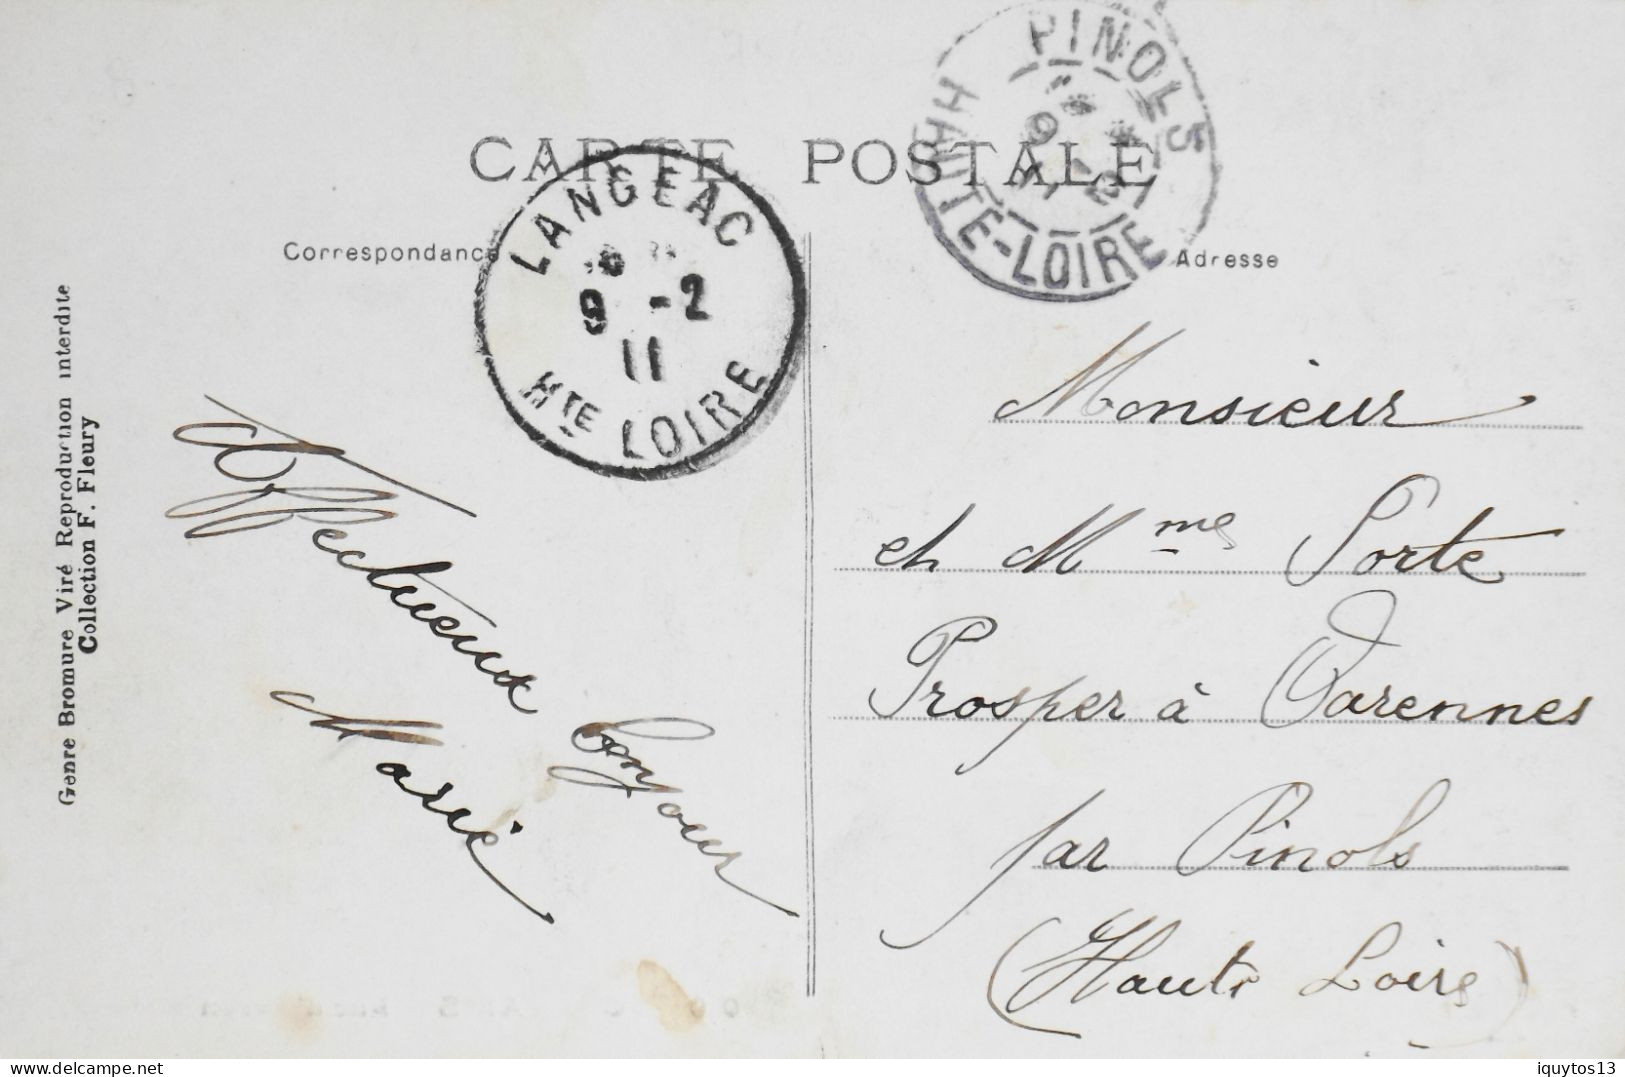 CARTE POSTALE
PINOLS
9 -2
11
HAUTE-LOIRE
LANGEAC
9 -2
11
Hte LOIRE
Correspondance
Adresse
Genre Bromure Viré Reproduction interdite
Collection F. Fleury
Affectueux Bonjour
Marie
Monsieur
et Mme Porte
Prosper à Varennes
par Pinols
(Haute Loire)
delcampe.net
iquytos13